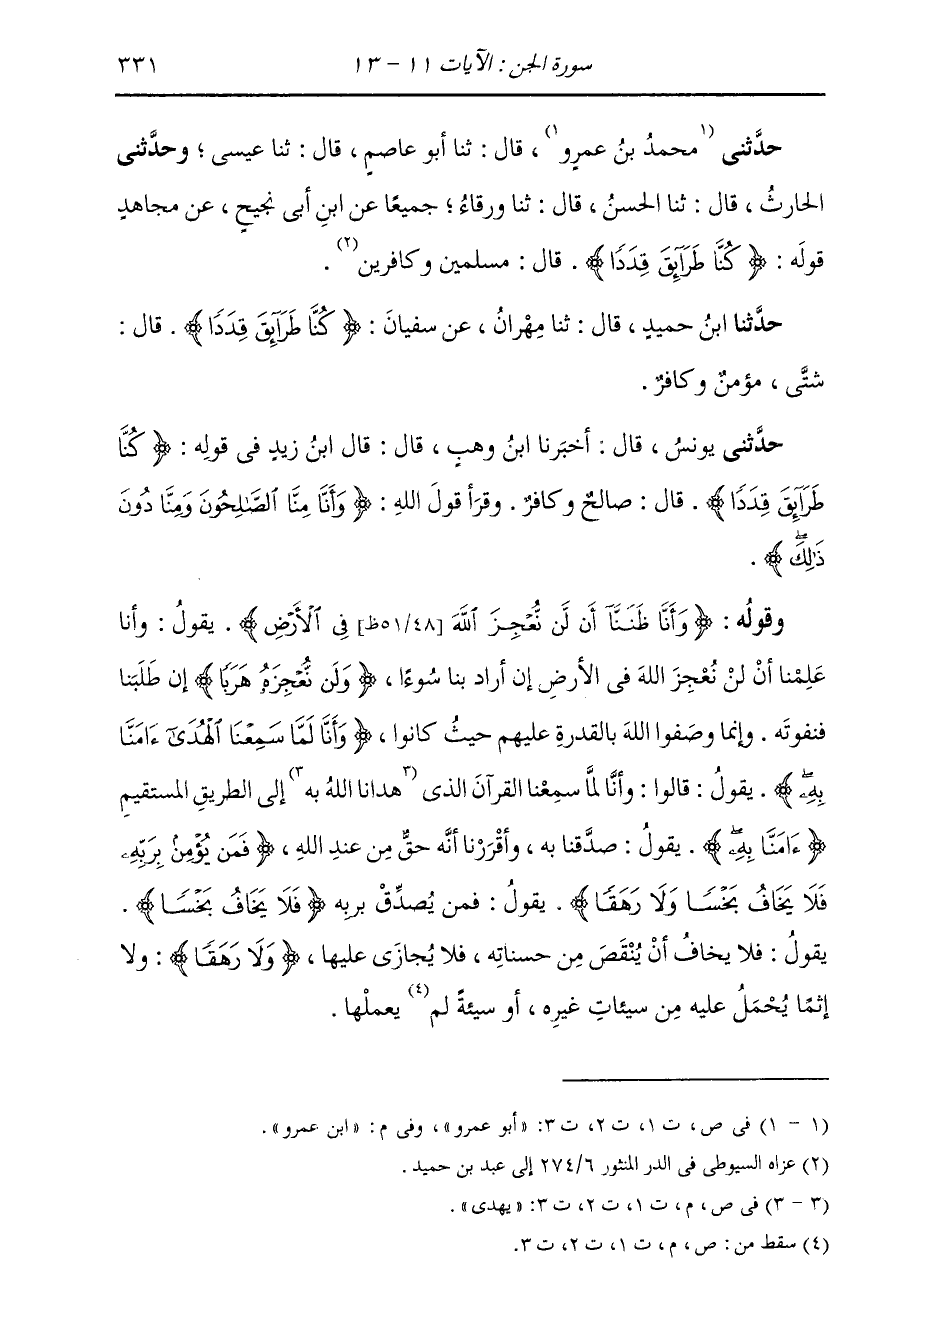 سورة الجن : الآيات ١١ - ١٣ ٣٣١
حدَّثنى (١محمدُ بنُ عمرٍو١) ، قال : ثنا أبو عاصمٍ ، قال : ثنا عيسى ؛ وحدَّثنى
الحارثُ ، قال : ثنا الحسنُ ، قال : ثنا ورقاءُ ؛ جميعًا عن ابنِ أبى نجيحٍ ، عن مجاهدٍ
قولَه : ﴿ كُنَّا طَرَآئِقَ قِدَدًا ﴾ . قال : مسلمين وكافرين(٢) .
حدَّثنا ابنُ حميدٍ ، قال : ثنا مِهْرانُ ، عن سفيانَ : ﴿ كُنَّا طَرَآئِقَ قِدَدًا ﴾ . قال :
شتَّى ، مؤمنٌ وكافرٌ .
حدَّثنى يونسُ ، قال : أخبَرنا ابنُ وهبٍ ، قال : قال ابنُ زيدٍ فى قولِه : ﴿ كُنَّا
طَرَآئِقَ قِدَدًا ﴾ . قال : صالحٌ وكافرٌ . وقرَأ قولَ اللهِ : ﴿ وَأَنَّا مِنَّا ٱلصَّـٰلِحُونَ وَمِنَّا دُونَ
ذَٰلِكَۖ ﴾ .
وقولُه : ﴿ وَأَنَّا ظَنَنَّآ أَن لَّن نُّعْجِزَ ٱللَّهَ [٥١/٤٨ظ] فِى ٱلْأَرْضِ ﴾ . يقولُ : وأنا
عَلِمْنا أنْ لنْ نُعْجِزَ اللهَ فى الأرضِ إن أراد بنا سُوءًا ، ﴿ وَلَن نُّعْجِزَهُۥ هَرَبًا ﴾ إن طلَبَنا
فنفوتَه . وإنما وصَفوا اللهَ بالقدرةِ عليهم حيثُ كانوا ، ﴿ وَأَنَّا لَمَّا سَمِعْنَا ٱلْهُدَىٰٓ ءَامَنَّا
بِهِۦۖ ﴾ . يقولُ : قالوا : وأنَّا لمَّا سمِعْنا القرآنَ الذى (٣هدانا اللهُ به٣) إلى الطريقِ المستقيمِ
﴿ ءَامَنَّا بِهِۦۖ ﴾ . يقولُ : صدَّقنا به ، وأقْرَرْنا أنَّه حقٌّ مِن عندِ اللهِ ، ﴿ فَمَن يُؤْمِنۢ بِرَبِّهِۦ
فَلَا يَخَافُ بَخْسًا وَلَا رَهَقًا ﴾ . يقولُ : فمن يُصدِّقْ بربِه ﴿ فَلَا يَخَافُ بَخْسًا ﴾ .
يقولُ : فلا يخافُ أنْ يُنْقَصَ مِن حسناتِه ، فلا يُجازَى عليها ، ﴿ وَلَا رَهَقًا ﴾ : ولا
إثمًا يُحْمَلُ عليه مِن سيئاتِ غيرِه ، أو سيئةً لم(٤) يعملْها .
(١ - ١) فى ص، ت ١، ت ٢، ت ٣: «أبو عمرو»، وفى م : «ابن عمرو» .
(٢) عزاه السيوطى فى الدر المنثور ٢٧٤/٦ إلى عبد بن حميد .
(٣ - ٣) فى ص، م، ت ١، ت ٢، ت ٣: «يهدى» .
(٤) سقط من : ص، م، ت ١، ت ٢، ت ٣.